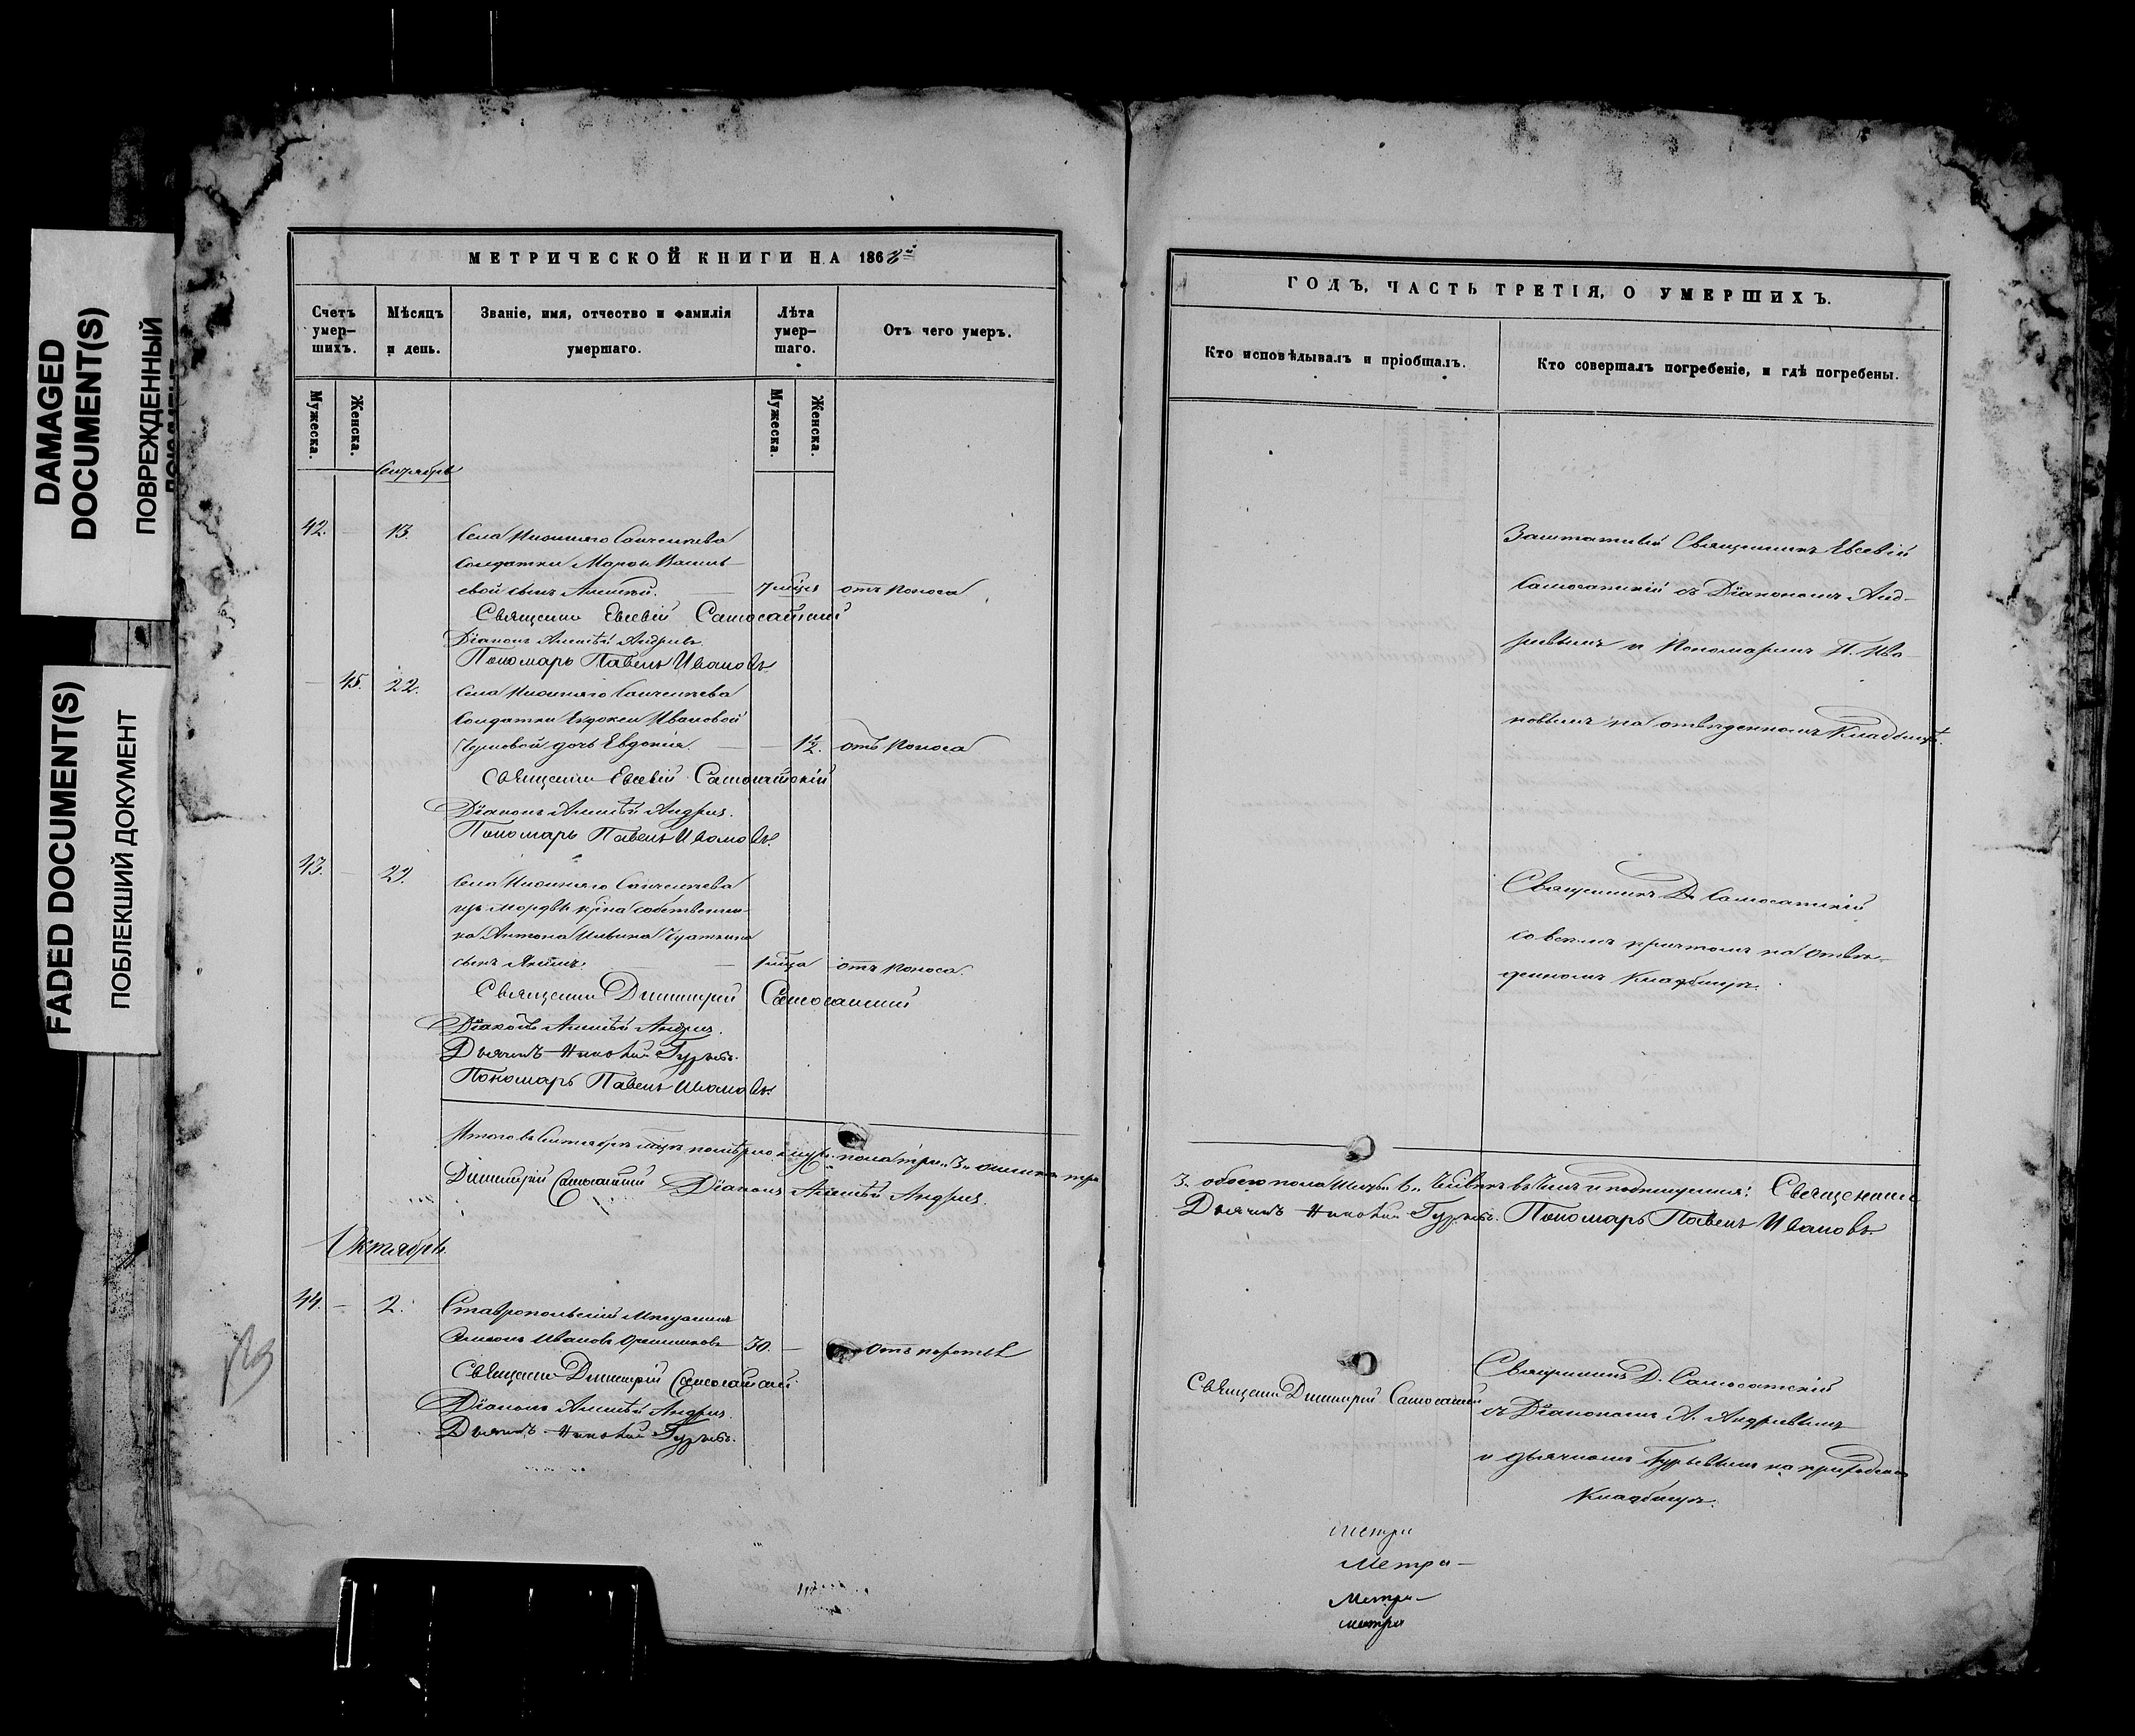 DAMAGED
DOCUMENT(S)
ПОВРЕЖДЕННЫЙ
FADED DOCUMENT(S)
ПОБЛЕКШИЙ ДОКУМЕНТ
МЕТРИЧЕСКОЙ КНИГИ НА 1868
Счетъ умер-шихъ.
Мѣсяцъ и день.
Званіе, имя, отчество и фамилія умершаго.
Лѣта умер-шаго.
Отъ чего умеръ.
Мужеска.
Женска.
Мужеска.
Женска.
Сентябрь
42. 13. Села Нижняго Санчелеева
солдатки Марьи Василь-
евой сынъ Алексѣй. 7 мѣсц. отъ поноса
Священникъ Евсевій Самосатскій
Діаконъ Алексѣй Андреевъ.
Пономарь Павелъ Ивановъ.
45. 22. Села Нижняго Санчелеева
солдатки Евдокеи Ивановой
дочь Евдокія. 1½. отъ поноса
Священникъ Евсевій Самосатскій
Діаконъ Алексѣй Андреевъ.
Пономарь Павелъ Ивановъ.
43. Села Нижняго Санчелеева
изъ мордвы крест. собственни-
ка Антона
сынъ отъ поноса.
Священникъ Димитрій Самосатскій
Діаконъ Алексѣй Андреевъ.
Дьячекъ Николай Гурьевъ.
Пономарь Павелъ Ивановъ.
Итого въ Сентябрѣ мѣсяцѣ померло муж. пола три 3 женска три
Димитрій Самосатскій Діаконъ Алексѣй Андреевъ.
Октябрь.
44. 2. Ставропольскій Мещанинъ
Иванов 30.
Священникъ Димитрій Самосатскій
Діаконъ Алексѣй Андреевъ.
Дьячекъ Николай Гурьевъ.
ГОДЪ, ЧАСТЬ ТРЕТІЯ, О УМЕРШИХЪ.
Кто исповѣдывалъ и пріобщалъ.
Кто совершалъ погребеніе, и гдѣ погребены.
Заштатный Священникъ Евсевій
Самосатскій съ Діакономъ Анд-
реевымъ и Пономаремъ П. Ива-
новымъ на отведенномъ Кладбищѣ.
Священникъ Д. Самосатскій
со всемъ причтомъ на отве-
денномъ Кладбищѣ.
3. обоего пола шесть 6 человѣкъ въ чемъ и подпишемся: Священникъ
Дьячекъ Николай Гурьевъ. Пономарь Павелъ Ивановъ.
Священникъ Димитрій Самосатскій
Священникъ Д. Самосатскій
съ Діакономъ А. Андреевымъ
и дьячкомъ Гурьевымъ на приходском
Кладбищѣ.
метри
Метри-
Метри-
метри